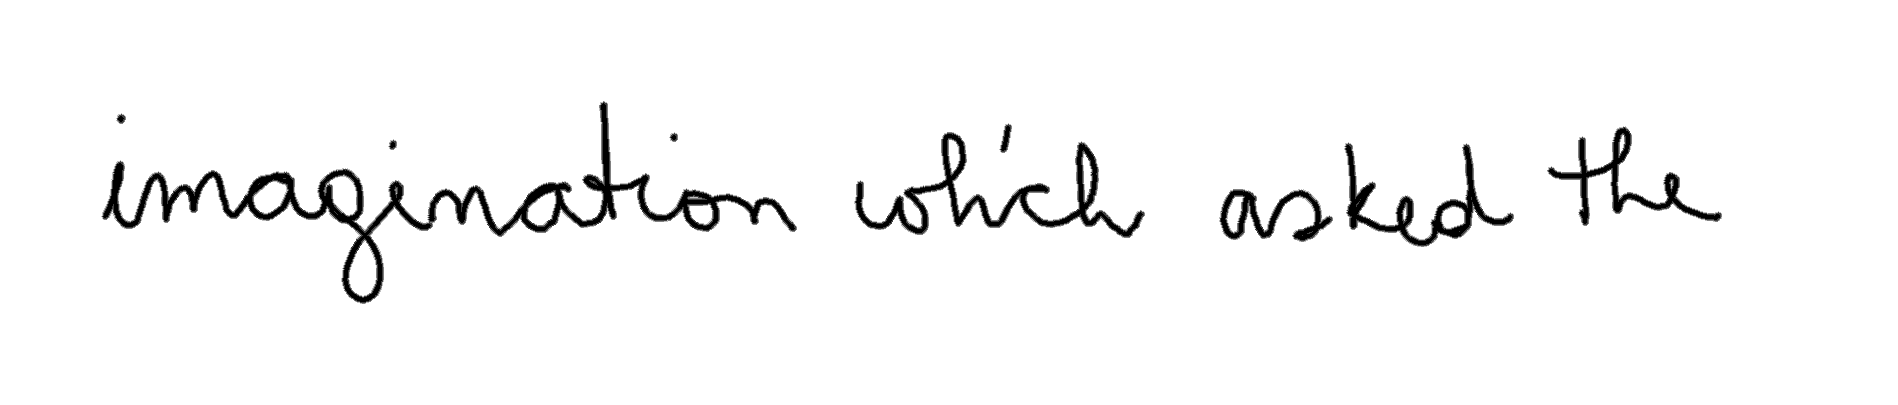 imagination which asked the